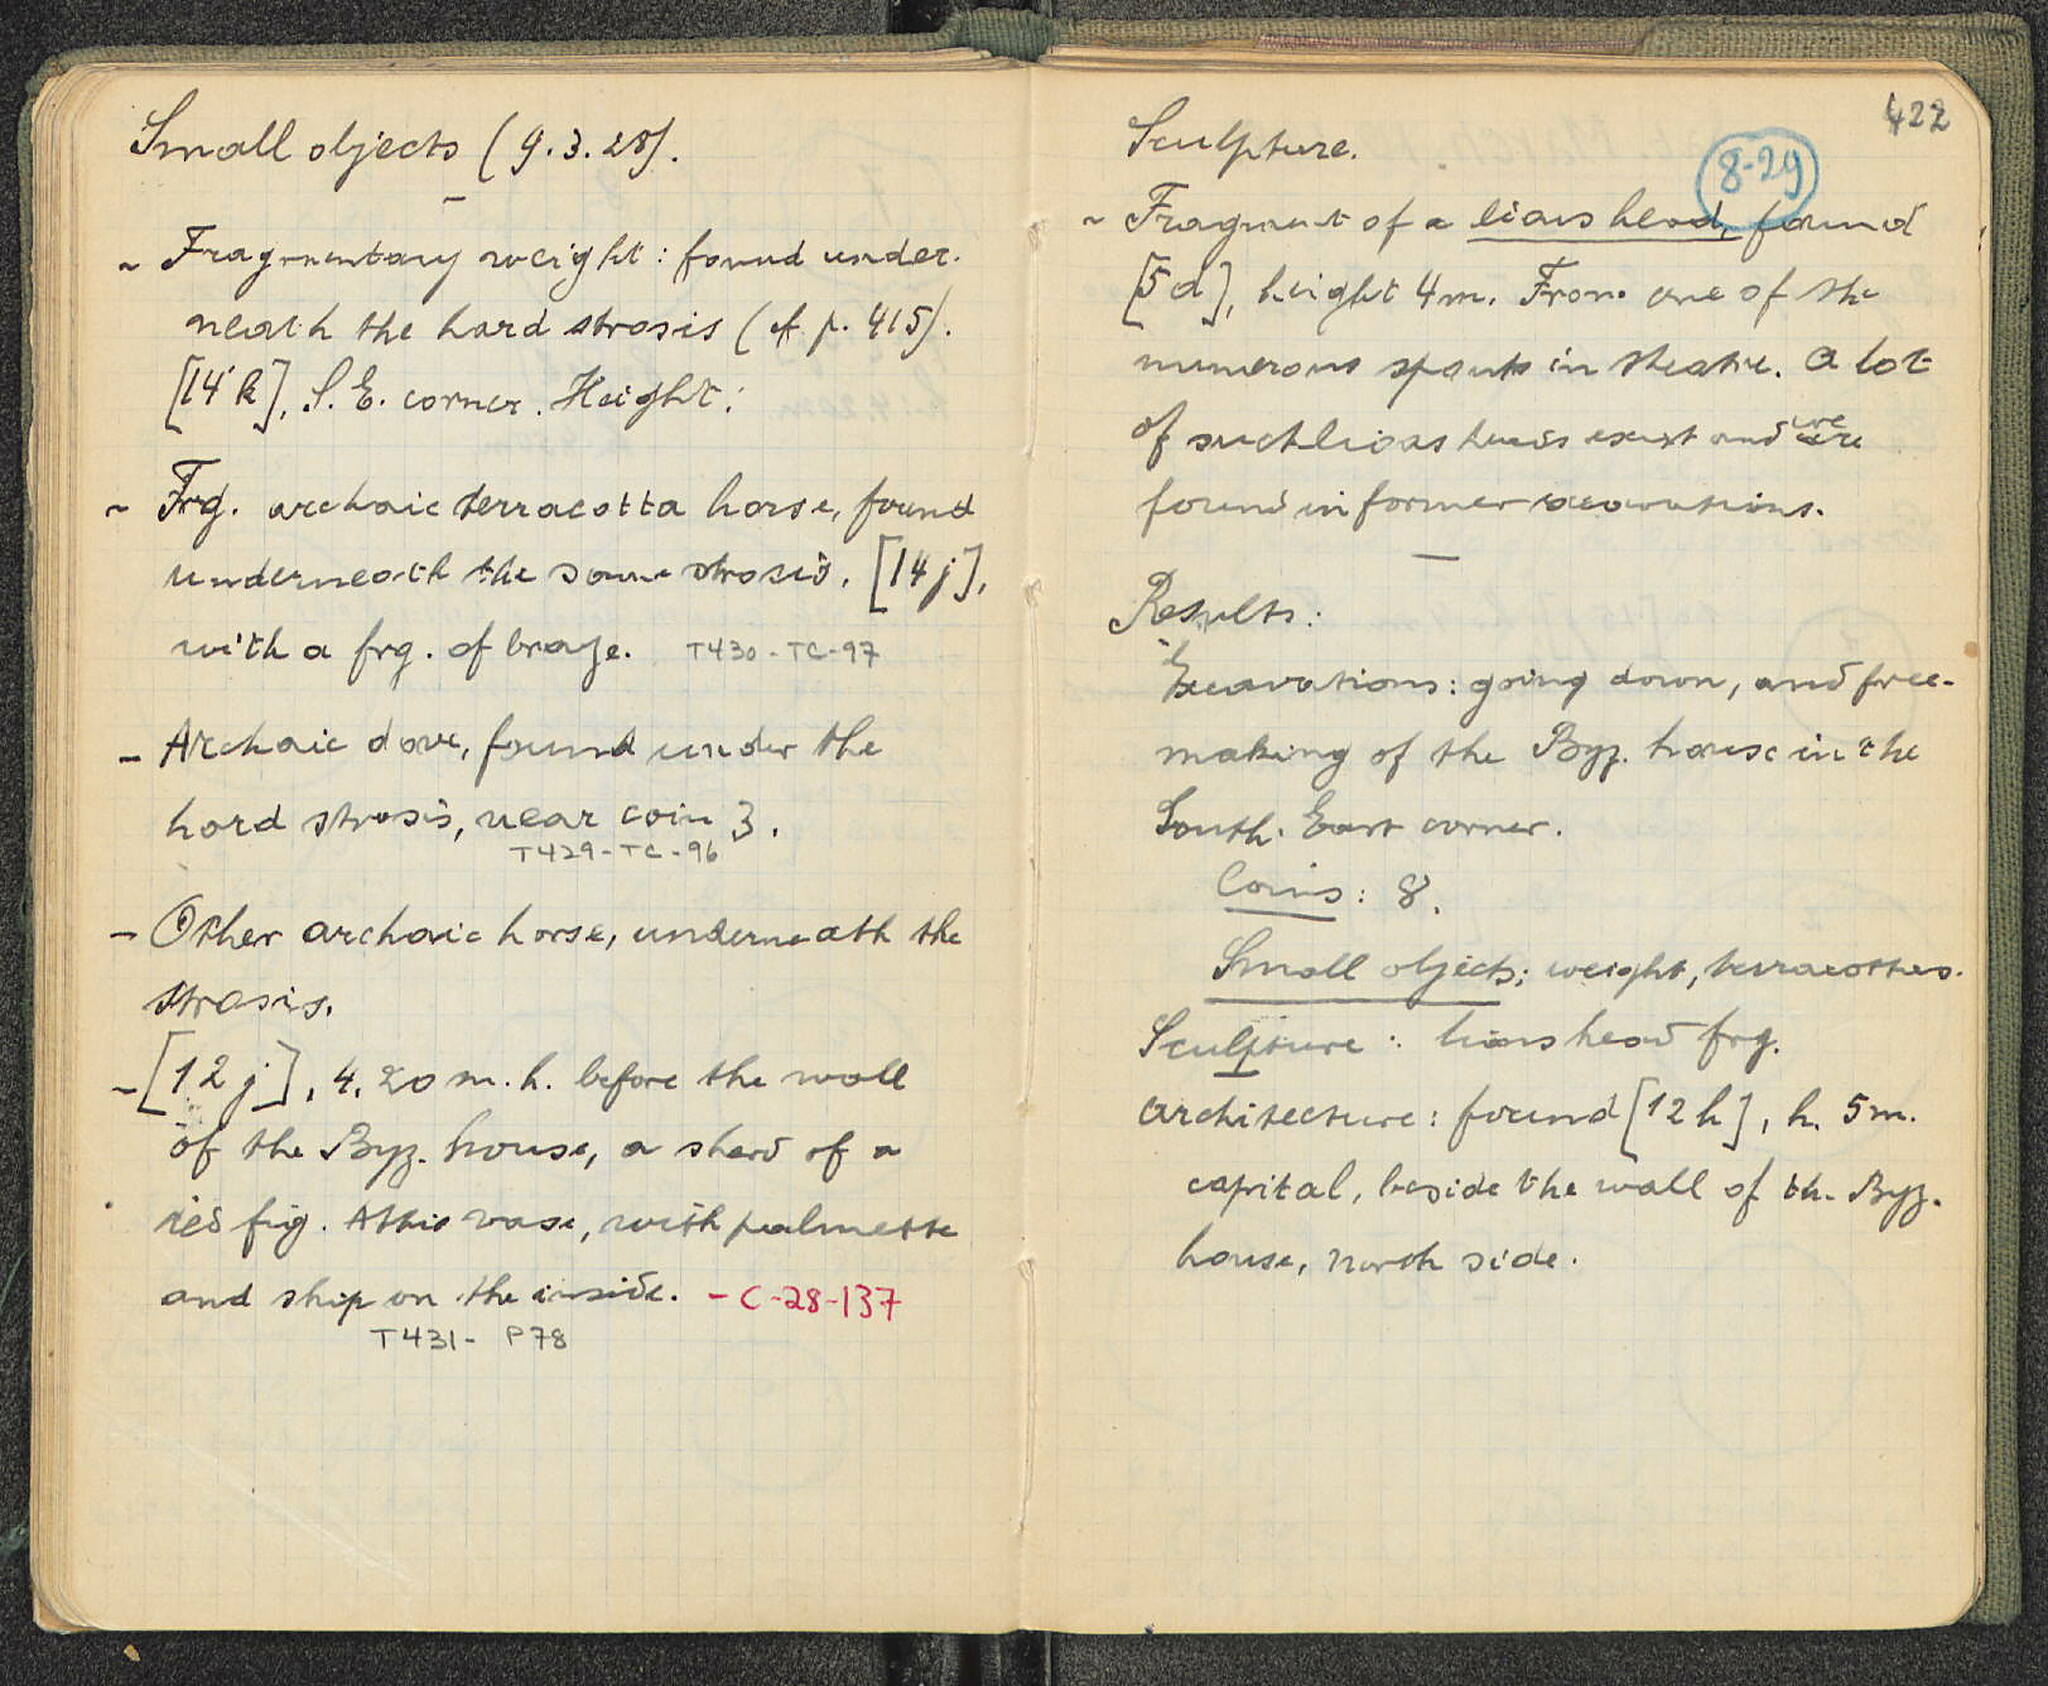 Small objects (9.3.28).
~ Fragmentary weight: found under-
neath the hard strosis (cf. p. 415).
[14 k], S.E. corner. Height:
~ Frg. archaic terracotta horse, found
underneath the same strosis. [14 j],
with a frg. of bronze. T430-TC-97
- Archaic dove, found under the
hard strosis, near coin 3.
T429-TC-96
- Other archaic horse, underneath the
strosis.
- [12 j], 4.20 m. h. before the wall
of the Byz. house, a sherd of a
red fig. Attic vase, with palmette
and ship on the inside. - C-28-137
T431- P78
422
Sculpture.
8-29
~ Fragment of a lions head, found
[5 d], height 4 m. From one of the
numerous spouts in theatre. A lot
of such lions heads exist and were
found in former excavations.
Results:
Excavations: going down, and free-
making of the Byz. house in the
South-East corner.
Coins: 8.
Small objects: weight, terracottas.
Sculpture: lions head frg.
Architecture: found [12 h], h. 5m.
capital, beside the wall of th. Byz.
house, north side.